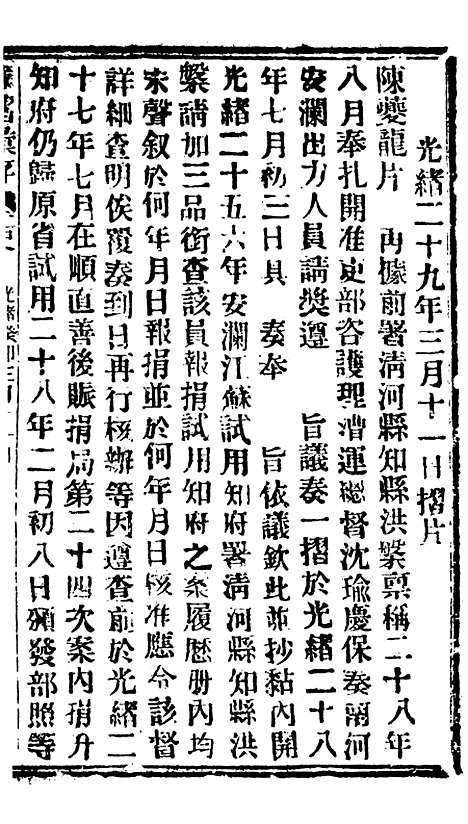 光緒二十九年三月十一日摺片
陳夔龍片　再據前署清河縣知縣洪槃稟稱二十八年
八月奉扎開准吏部咨護理漕運總督沈瑜慶保奏南河
安瀾出力人員請獎遵　旨議奏一摺於光緒二十八
年七月初三日具　奏奉　旨依議欽此並抄黏內開
光緒二十五六年安瀾江蘇試用知府署清河縣知縣洪
槃請加三品銜查該員報捐試用知府之案履歷册內均
未聲叙於何年月日報捐並於何年月日核准應令該督
詳細查明俟覆奏到日再行核辦等因遵查前於光緒二
十七年七月在順直善後賑捐局第二十四次案內捐升
知府仍歸原省試用二十八年二月初八日頒發部照等